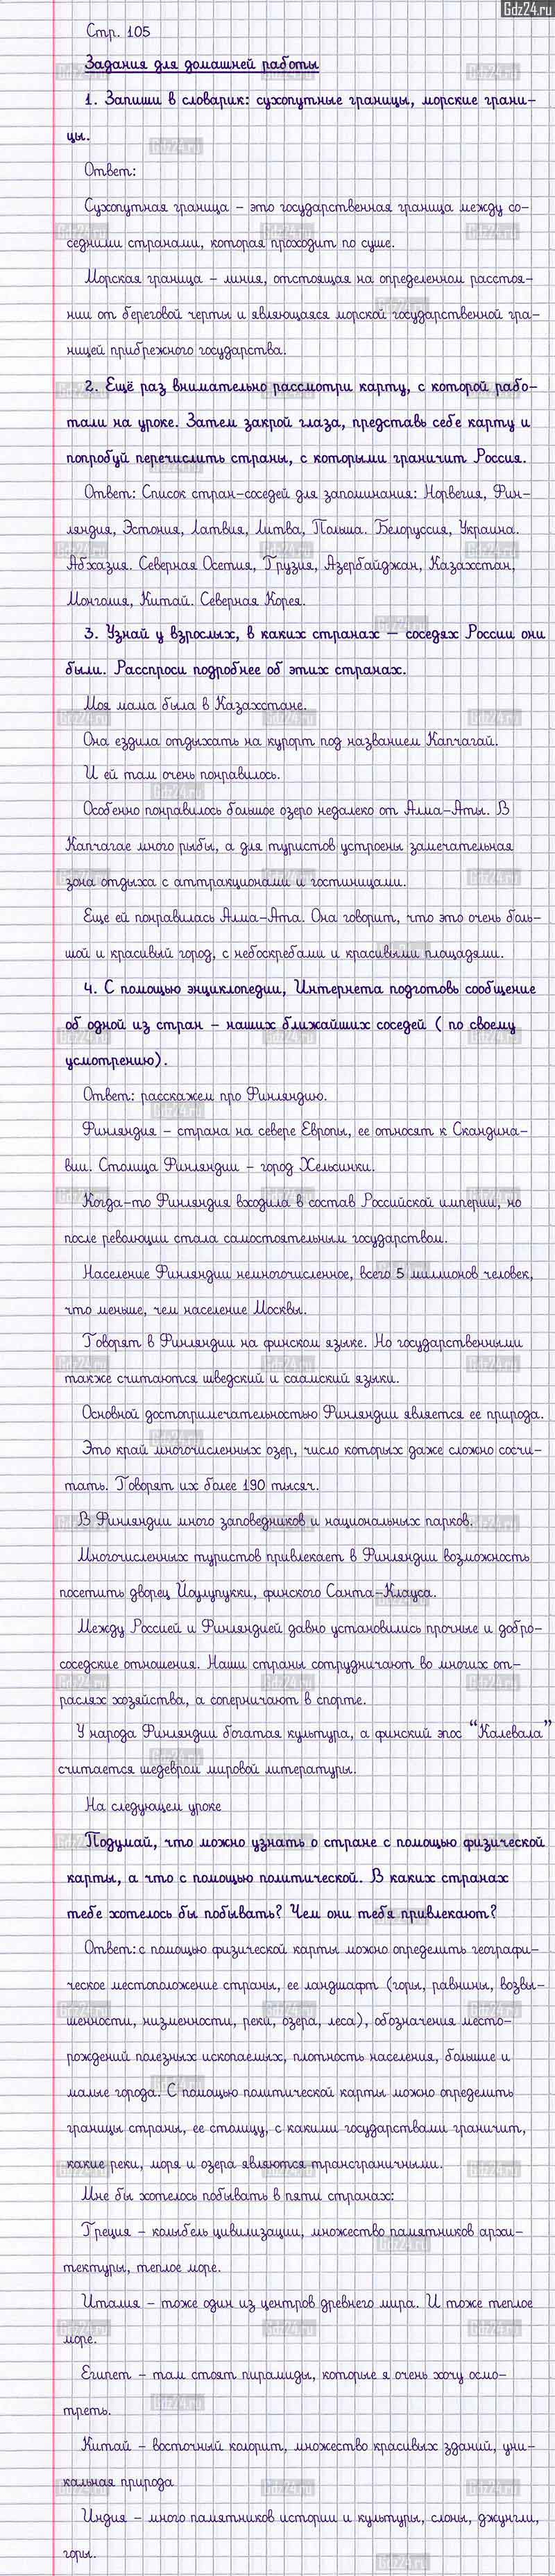 Gdz24.ru
Стр. 105
Задания для домашней работы
1. Запиши в словарик: сухопутные границы, морские грани-
цы.
Ответ:
Сухопутная граница – это государственная граница между со-
седними странами, которая проходит по суше.
Морская граница – линия, отстоящая на определенном расстоя-
нии от береговой черты и являющаяся морской государственной гра-
ницей прибрежного государства.
2. Ещё раз внимательно рассмотри карту, с которой рабо-
тали на уроке. Затем закрой глаза, представь себе карту и
попробуй перечислить страны, с которыми граничит Россия.
Ответ: Список стран-соседей для запоминания: Норвегия, Фин-
ляндия, Эстония, Латвия, Литва, Польша. Белоруссия, Украина.
Абхазия. Северная Осетия, Грузия, Азербайджан, Казахстан,
Монголия, Китай. Северная Корея.
3. Узнай у взрослых, в каких странах – соседях России они
были. Расспроси подробнее об этих странах.
Моя мама была в Казахстане.
Она ездила отдыхать на курорт под названием Капчагай.
И ей там очень понравилось.
Особенно понравилось большое озеро недалеко от Алма-Аты. В
Капчагае много рыбы, а для туристов устроены замечательная
зона отдыха с аттракционами и гостиницами.
Еще ей понравилась Алма-Ата. Она говорит, что это очень боль-
шой и красивый город, с небоскребами и красивыми площадями.
4. С помощью энциклопедии, Интернета подготовь сообщение
об одной из стран – наших ближайших соседей ( по своему
усмотрению).
Ответ: расскажем про Финляндию.
Финляндия – страна на севере Европы, ее относят к Скандина-
вии. Столица Финляндии – город Хельсинки.
Когда-то Финляндия входила в состав Российской империи, но
после революции стала самостоятельным государством.
Население Финляндии немногочисленное, всего 5 миллионов человек,
что меньше, чем население Москвы.
Говорят в Финляндии на финском языке. Но государственными
также считаются шведский и саамский языки.
Основной достопримечательностью Финляндии является ее природа.
Это край многочисленных озер, число которых даже сложно сосчи-
тать. Говорят их более 190 тысяч.
В Финляндии много заповедников и национальных парков.
Многочисленных туристов привлекает в Финляндии возможность
посетить дворец Йоулупукки, финского Санта-Клауса.
Между Россией и Финляндией давно установились прочные и добро-
соседские отношения. Наши страны сотрудничают во многих от-
раслях хозяйства, а соперничают в спорте.
У народа Финляндии богатая культура, а финский эпос “Калевала”
считается шедевром мировой литературы.
На следующем уроке
Подумай, что можно узнать о стране с помощью физической
карты, а что с помощью политической. В каких странах
тебе хотелось бы побывать? Чем они тебя привлекают?
Ответ: с помощью физической карты можно определить географи-
ческое местоположение страны, ее ландшафт (горы, равнины, возвы-
шенности, низменности, реки, озера, леса), обозначения место-
рождений полезных ископаемых, плотность населения, большие и
малые города. С помощью политической карты можно определить
границы страны, ее столицу, с какими государствами граничит,
какие реки, моря и озера являются трансграничными.
Мне бы хотелось побывать в пяти странах:
Греция – колыбель цивилизации, множество памятников архи-
тектуры, теплое море.
Италия – тоже один из центров древнего мира. И тоже теплое
море.
Египет – там стоят пирамиды, которые я очень хочу осмо-
треть.
Китай – восточный колорит, множество красивых зданий, уни-
кальная природа
Индия – много памятников истории и культуры, слоны, джунгли,
горы.